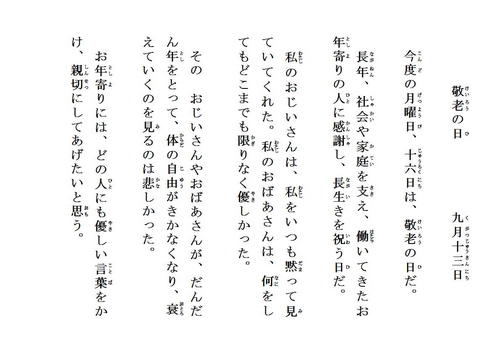 敬老の日　九月十三日
今度の月曜日、十六日は、敬老の日だ。
長年、社会や家庭を支え、働いてきたお
年寄りの人に感謝し、長生きを祝う日だ。
私のおじいさんは、私をいつも黙って見
ていてくれた。私のおばあさんは、何をし
てもどこまでも限りなく優しかった。
その　おじいさんやおばあさんが、だんだ
ん年をとって、体の自由がきかなくなり、衰
えていくのを見るのは悲しかった。
お年寄りには、どの人にも優しい言葉をか
け、親切にしてあげたいと思う。